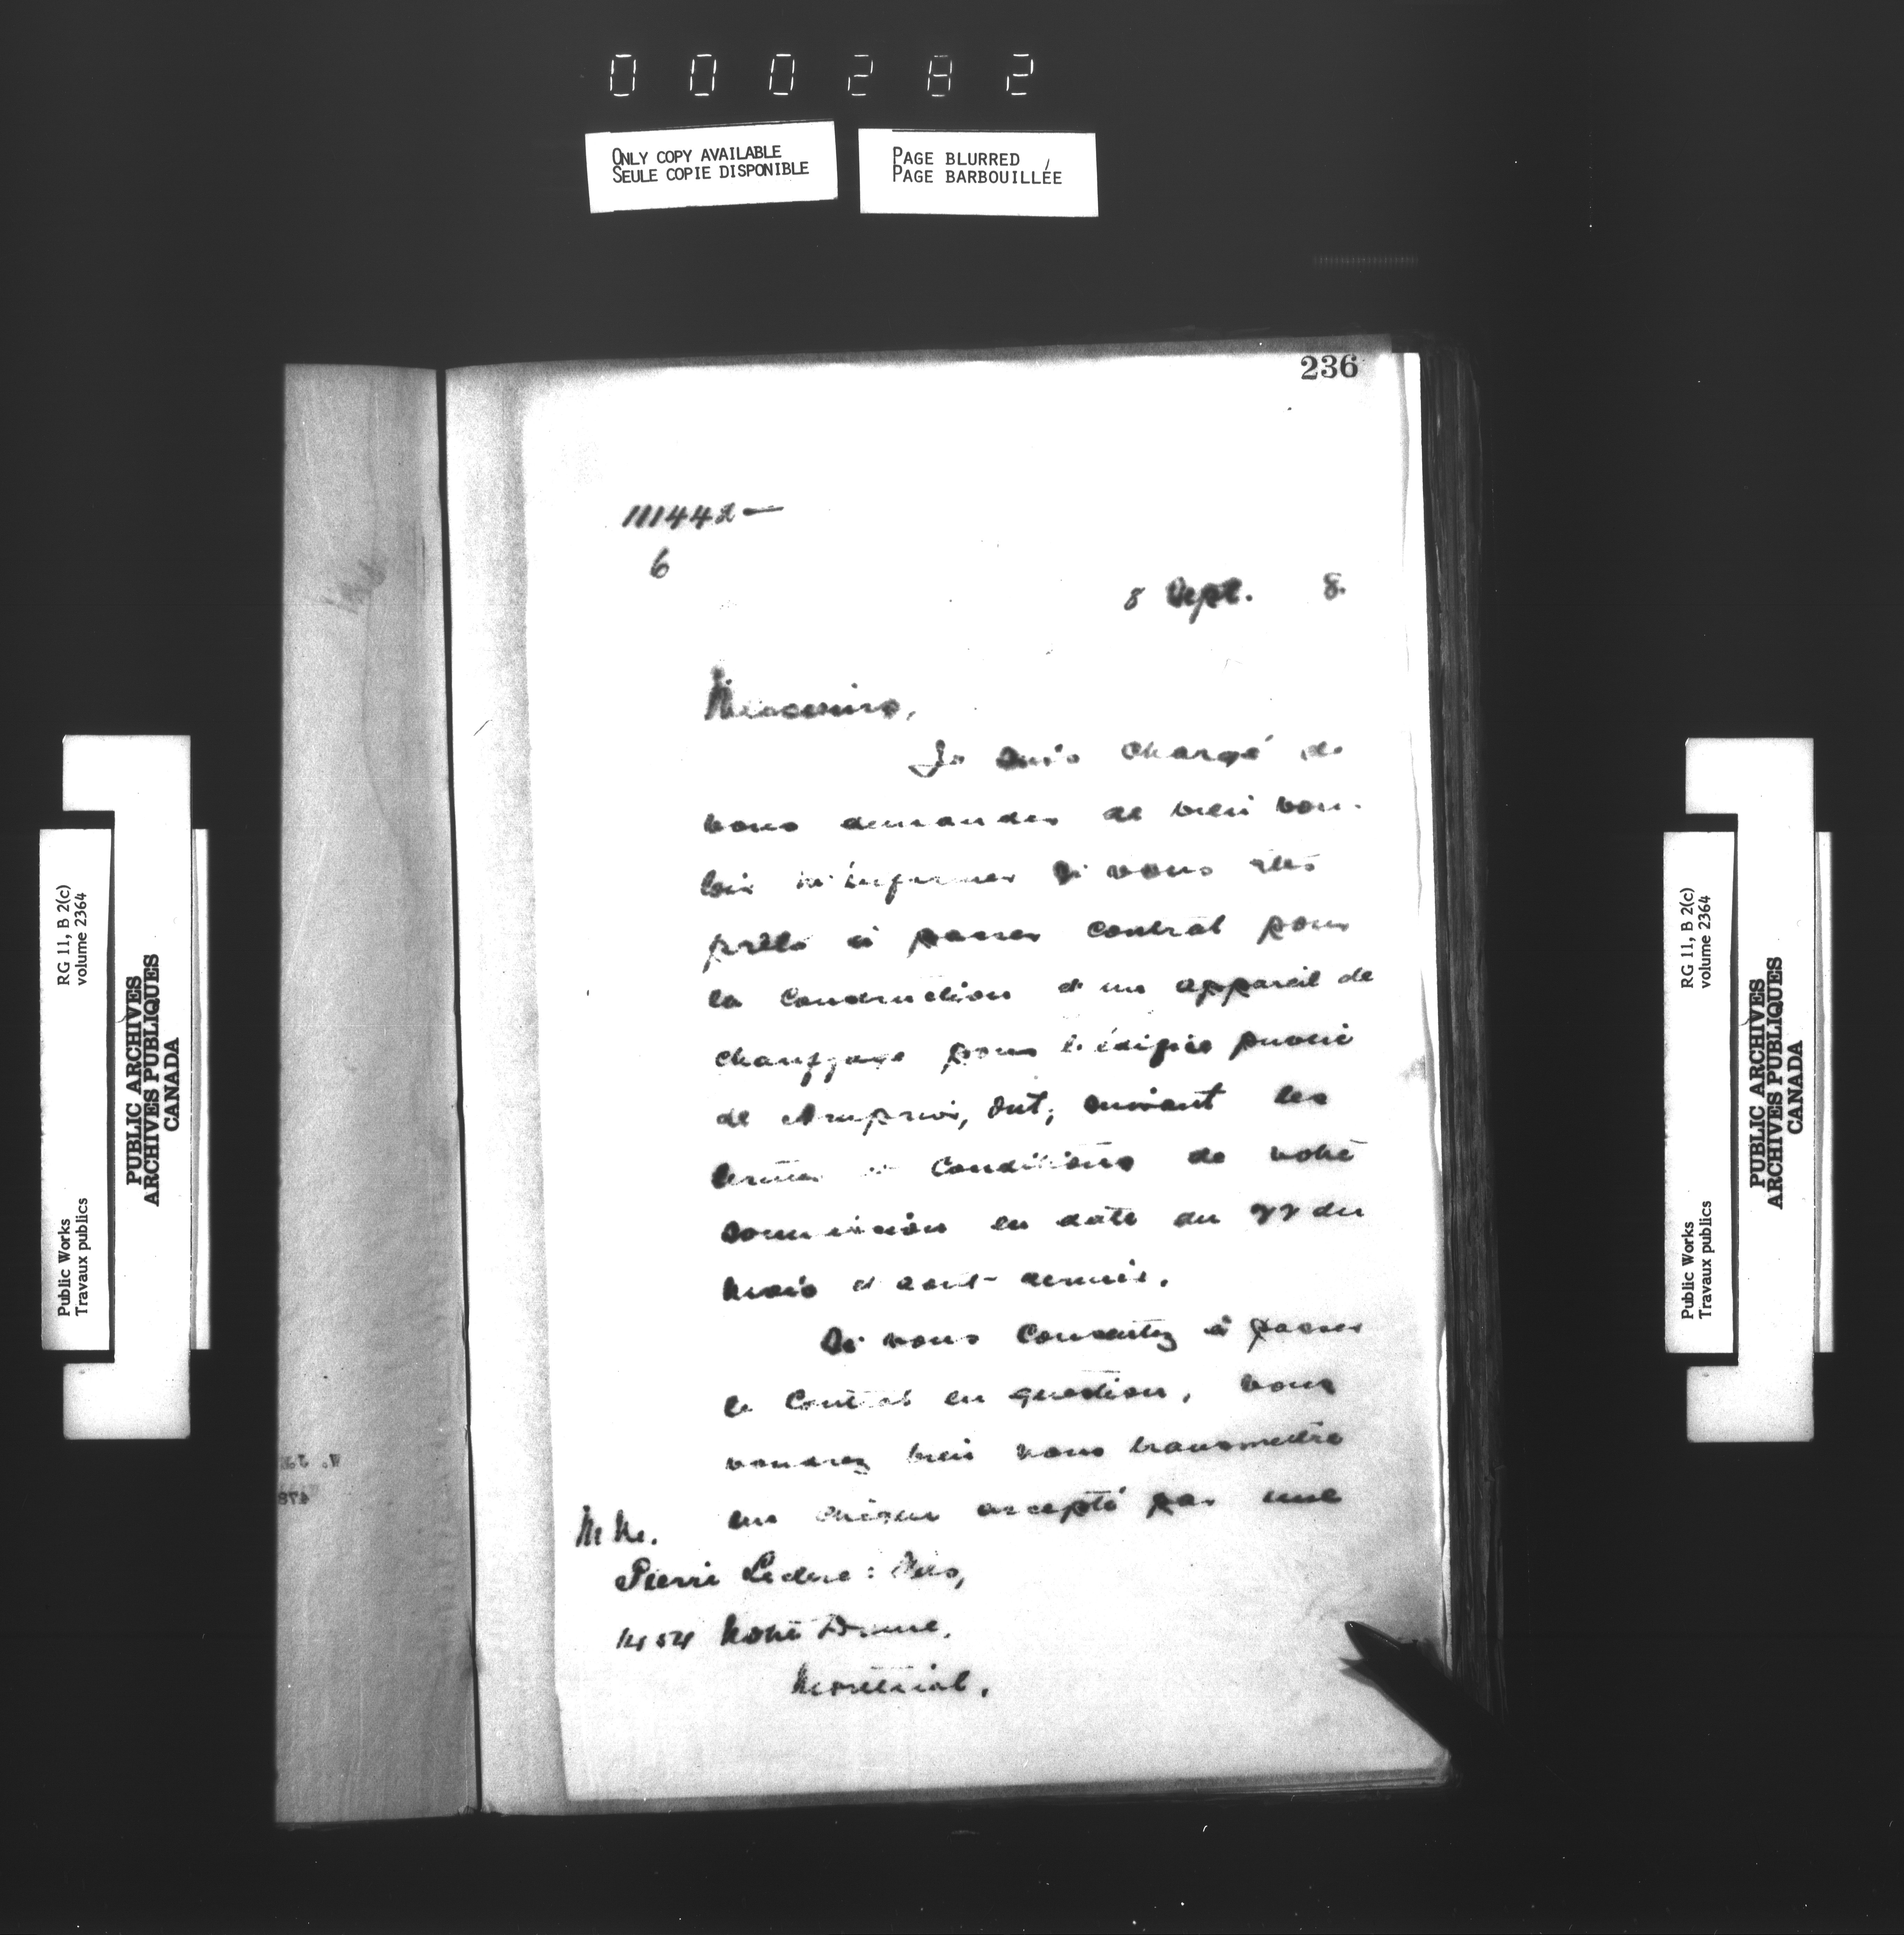 000282
ONLY COPY AVAILABLE
SEULE COPIE DISPONIBLE
PAGE BLURRED
PAGE BARBOUILLÉE
236
111442 —
6
8 Sept. 8.
Messieurs,
Je suis chargé de
vous demander de bien vou-
loir m'informer si vous êtes
prêts à passer contrat pour
la construction d'un appareil de
chauffage pour l'édifice public
de Arnprior, Ont, suivant les
termes et conditions de votre
soumission en date du 27 du
mois d'aout dernier.
Si vous consentez à passer
le contrat en question, vous
voudrez bien nous transmettre
un chèque accepté par une
MM.
Pierre Leduc : Fils,
1454 Notre Dame,
Montréal.
RG 11, B 2(c)
volume 2364
PUBLIC ARCHIVES
ARCHIVES PUBLIQUES
CANADA
Public Works
Travaux publics
RG 11, B 2(c)
volume 2364
PUBLIC ARCHIVES
ARCHIVES PUBLIQUES
CANADA
Public Works
Travaux publics